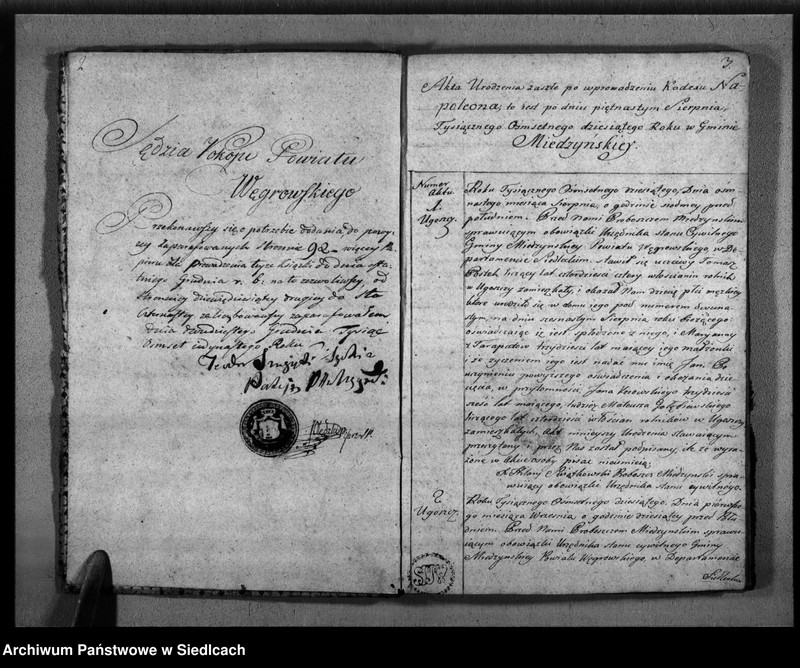 2
Sędzia Pokoju Powiatu
Węgrowskiego
Przekonawszy się o potrzebie dodania do powy-
zaparafowanych stronnic 92 więcey pa-
pieru dla prowadzenia teyże książki do dnia osta-
tniego Grudnia r. b. na to zezwoliwszy, od
stronnicy dziewiędziesiątey drugiey do Sto
zaliczbowawszy zaparafowałem
dnia Grudnia Tysiąc
Ośmset iedynastego Roku
3.
Akta Urodzenia zaszłe po wprowadzeniu Kodexu Na-
poleona; to iest po dniu piętnastym Sierpnia,
Tysiącznego Osmsetnego dziesiątego Roku w Gminie
Miedzynskiey.
Numer
aktu.
1.
Ugoszcz.
Roku Tysiącznego Osmsetnego dziesiątego, Dnia osm-
nastego miesiąca Sierpnia, o godzinie siodmey przed
południem. Przed Nami Proboszczem Miedzynskim
sprawuiącym obowiązki Urzędnika stanu Cywilnego
Gminy Miedzynskiey Powiatu Węgrowskiego, w De-
partamencie Siedleckim, stawił się uczciwy Tomasz
liczący lat czterdzieści cztery włościanin rolnik
w Ugoszczy zamieszkały, i okazał Nam dziecię płci męzkiey
ktore urodziło się w domu iego pod numerem dwuna-
stym, na dniu szesnastym Sierpnia roku bieżącego
oświadczaiąc iż iest spłodzone z niego, i Maryanny
z Tarapatow trzydzieści lat maiącey iego małżonki
i że życzeniem iego iest nadać mu imię Jan. Po
uczynieniu powyższego oświadczenia i okazania dzie-
cięcia, w przytomności, Jana trzydzieści
sześć lat maiącego, tudzież Mateusza
liczącego lat czterdzieści włościan rolnikow w Ugoszczy
zamieszkałych. Akt ninieyszy Urodzenia stawaiącym
przeczytany i przez Nas został podpisany, ile że wyra-
żone w Akcie osoby pisać nieumieią.
X. Kwiatkowski Proboszcz Miedzynski spra-
wuiący obowiązki Urzędnika stanu cywilnego.
2.
Ugoszcz.
Roku Tysiącznego Osmsetnego dziesiątego. Dnia pierwsze-
go miesiąca Września, o godzinie dziesiątey przed Połu-
dniem. Przed Nami Proboszczem Miedzynskim sprawu-
iącym obowiązki Urzędnika stanu cywilnego Gminy
Miedzynskiey Powiatu Węgrowskiego, w Departamencie
Siedleckim
Archiwum Państwowe w Siedlcach